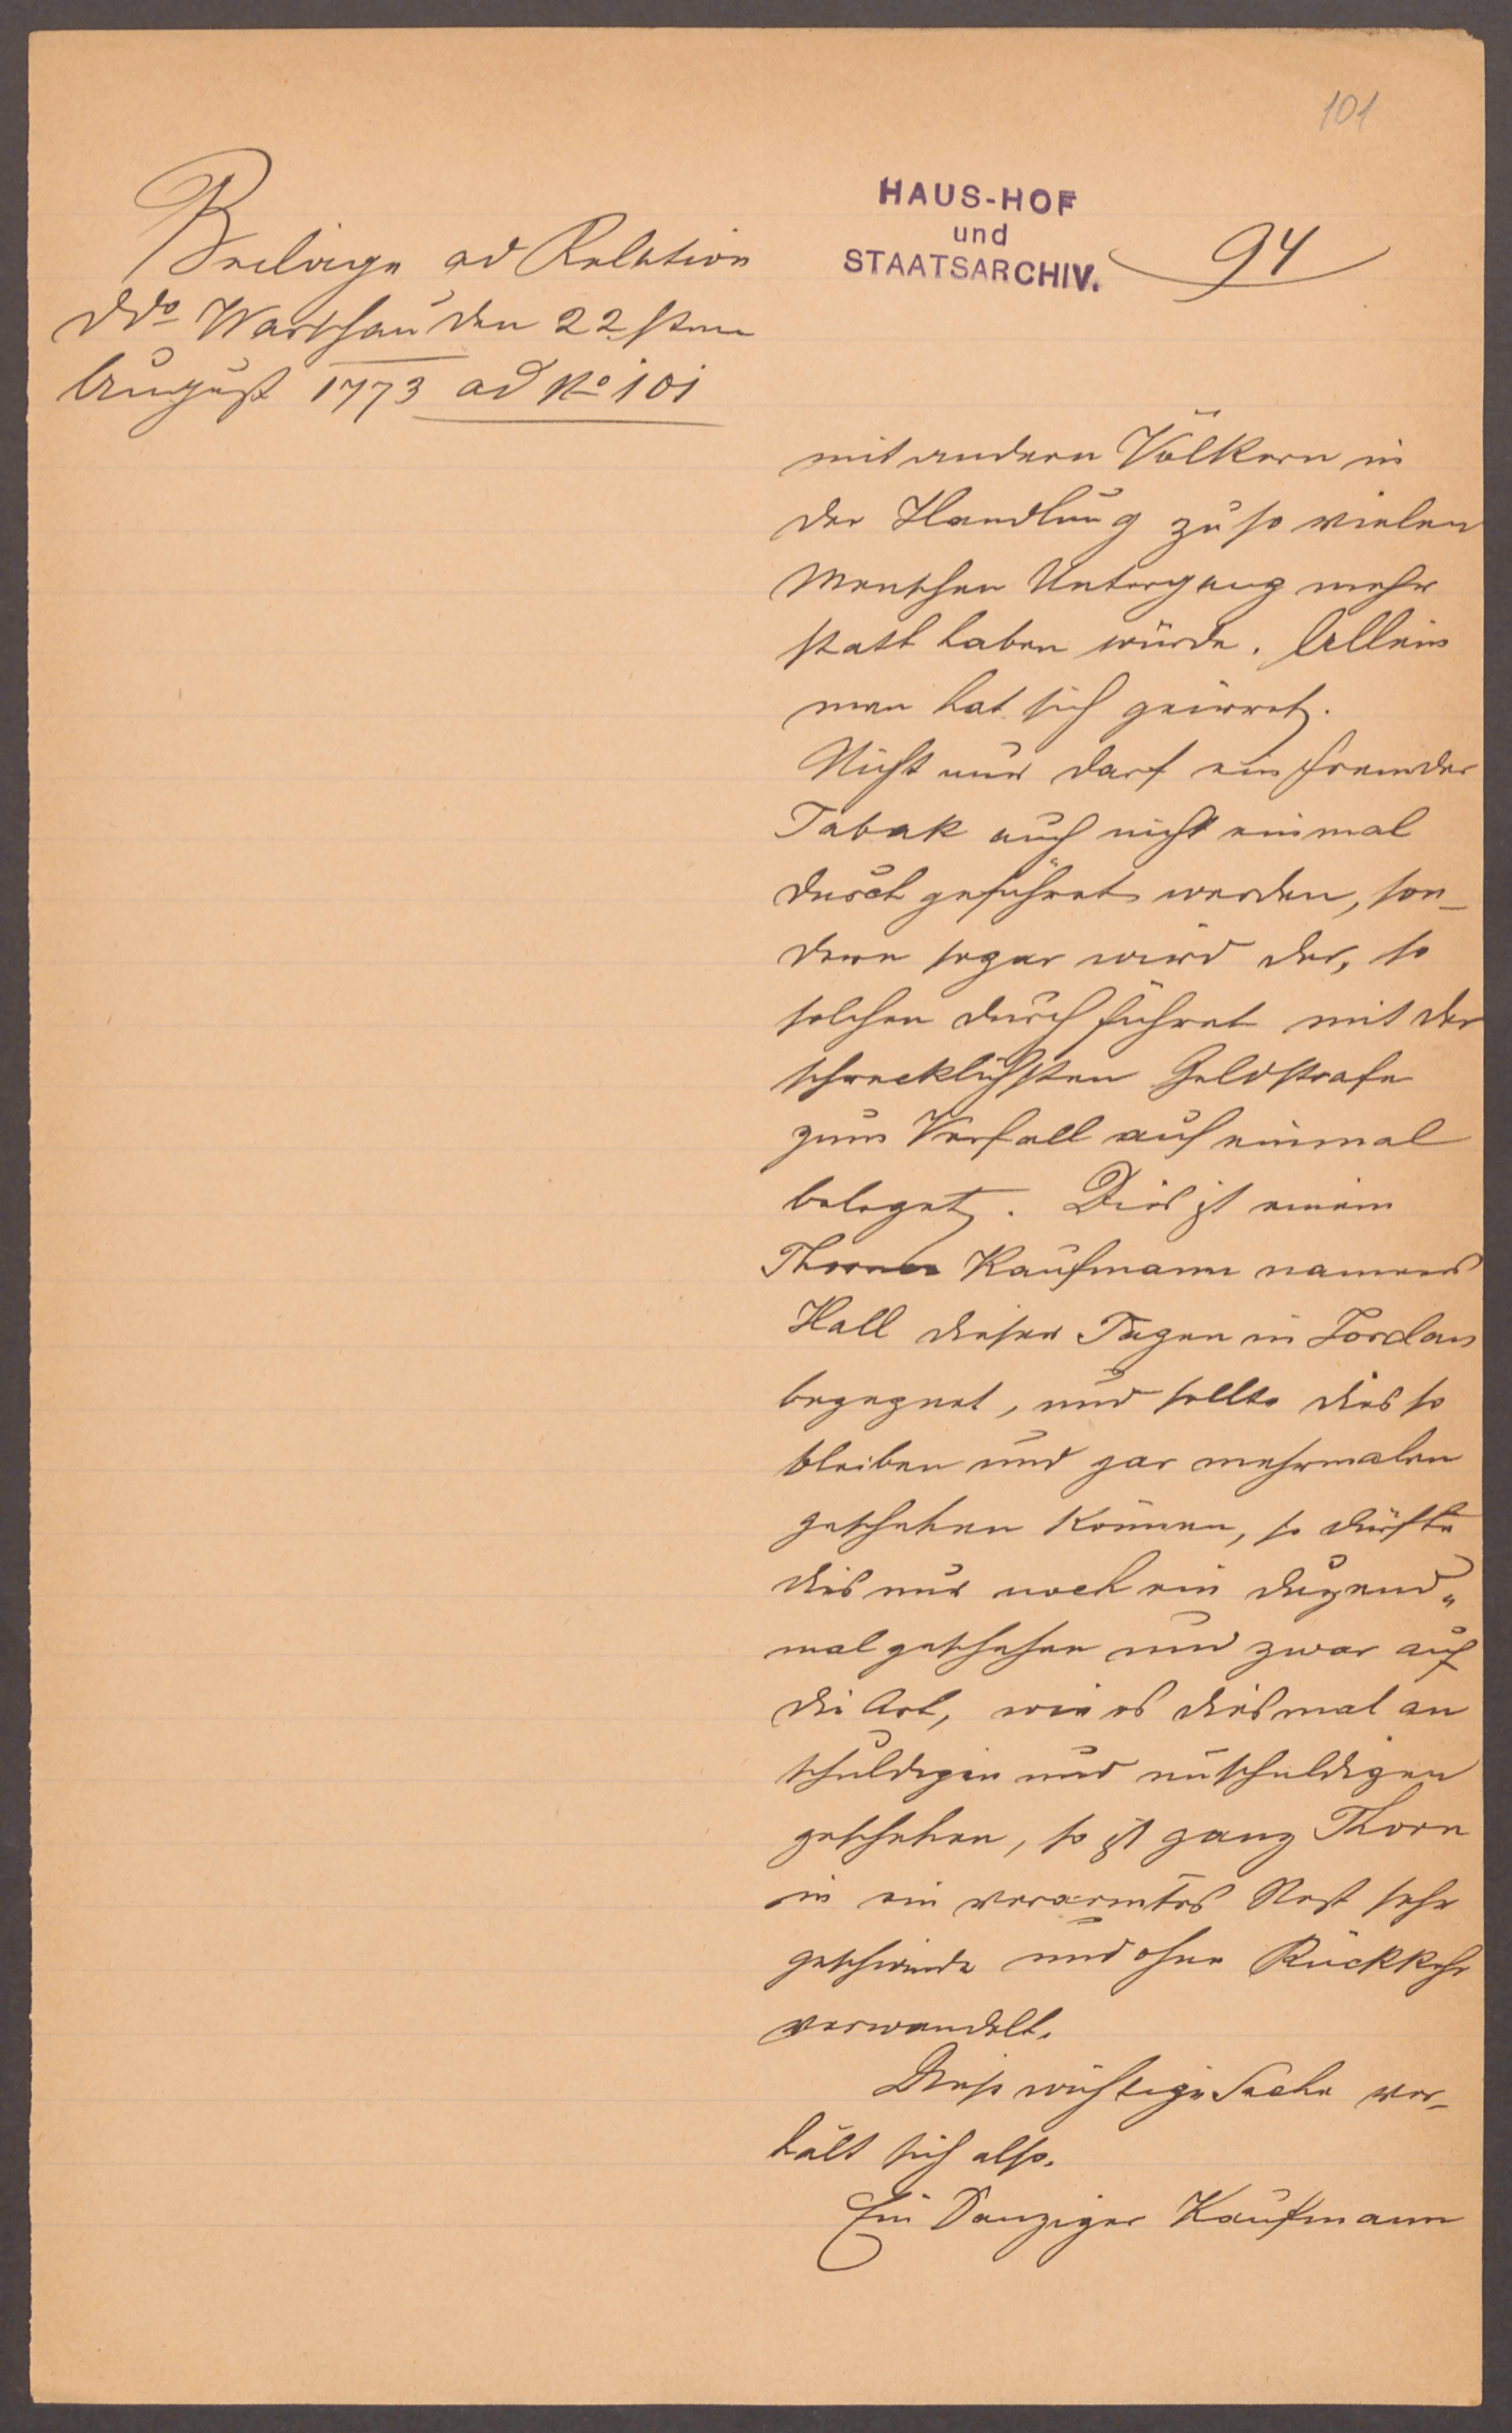 101
HAUS-HOF
und
STAATSARCHIV.
94
Beilage ad Relation
ddo Warschau den 22sten
August 1773 ad No 101
mit andern Völkern in
der Handlung zu so vielen
Menschen Untergang mehr
statt haben würde. Allein
man hat sich geirret.
Nicht nur darf ein fremder
Tabak auch nicht einmal
durch geführet werden, son-
dern sogar wird der, so
solchen durch führet mit der
schrecklichsten Geldstrafe
zum Verfall auf einmal
beleget. Dies ist einem
Thorner Kaufmann namens
Hall dieser Tagen in Fordan
begegnet, und sollte dies so
bleiben und gar mehrmalen
geschehen können, so dürfte
dies nur noch ein duzend„
mal geschehen und zwar auf
die Art, wie es diesmal an
schuldigen und unschuldigen
geschehen, so ist ganz Thorn
in ein verarmtes Nest sehr
geschwinde und ohne Rückkehr
verwandelt.
Diese wichtige Sache ver-
hält sich also.
Ein Danziger Kaufmann